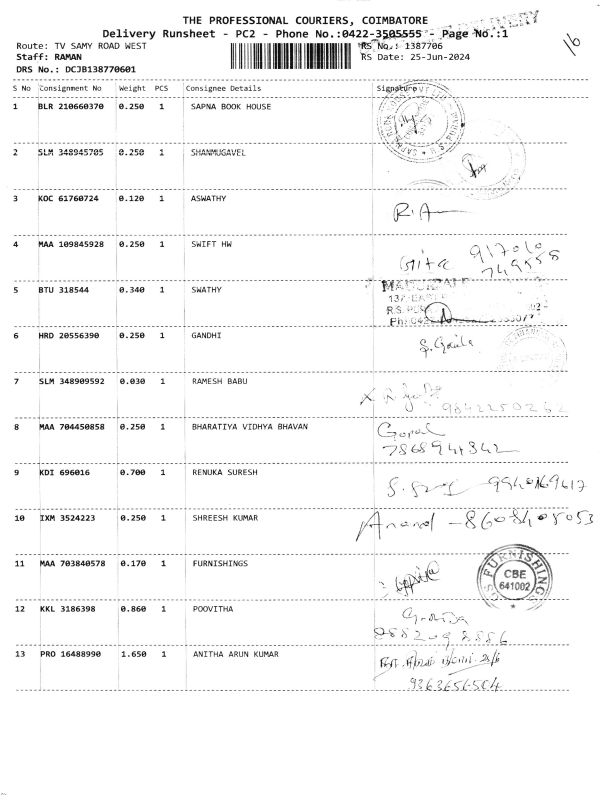 THE PROFESSIONAL COURIERS, COIMBATORE
DELIVERY
Delivery Runsheet - PC2 - Phone No.:0422-3505555 - Page No.:1
16
Route: TV SAMY ROAD WEST
RS No.: 1387706
Staff: RAMAN
RS Date: 25-Jun-2024
DRS No.: DCJB138770601
S No Consignment No Weight PCS Consignee Details Signature
1 BLR 210660370 0.250 1 SAPNA BOOK HOUSE
2 SLM 348945705 0.250 1 SHANMUGAVEL
3 KOC 61760724 0.120 1 ASWATHY R.A
4 MAA 109845928 0.250 1 SWIFT HW
5 BTU 318544 0.340 1 SWATHY
6 HRD 20556390 0.250 1 GANDHI
7 SLM 348909592 0.030 1 RAMESH BABU
9842250252
8 MAA 704450858 0.250 1 BHARATIYA VIDHYA BHAVAN Gopal
7868944342
9 KDI 696016 0.700 1 RENUKA SURESH
10 IXM 3524223 0.250 1 SHREESH KUMAR Anand - 8608405053
11 MAA 703840578 0.170 1 FURNISHINGS
FURNISHINGS
CBE
641002
12 KKL 3186398 0.860 1 POOVITHA
13 PRO 16488990 1.650 1 ANITHA ARUN KUMAR
9363656504